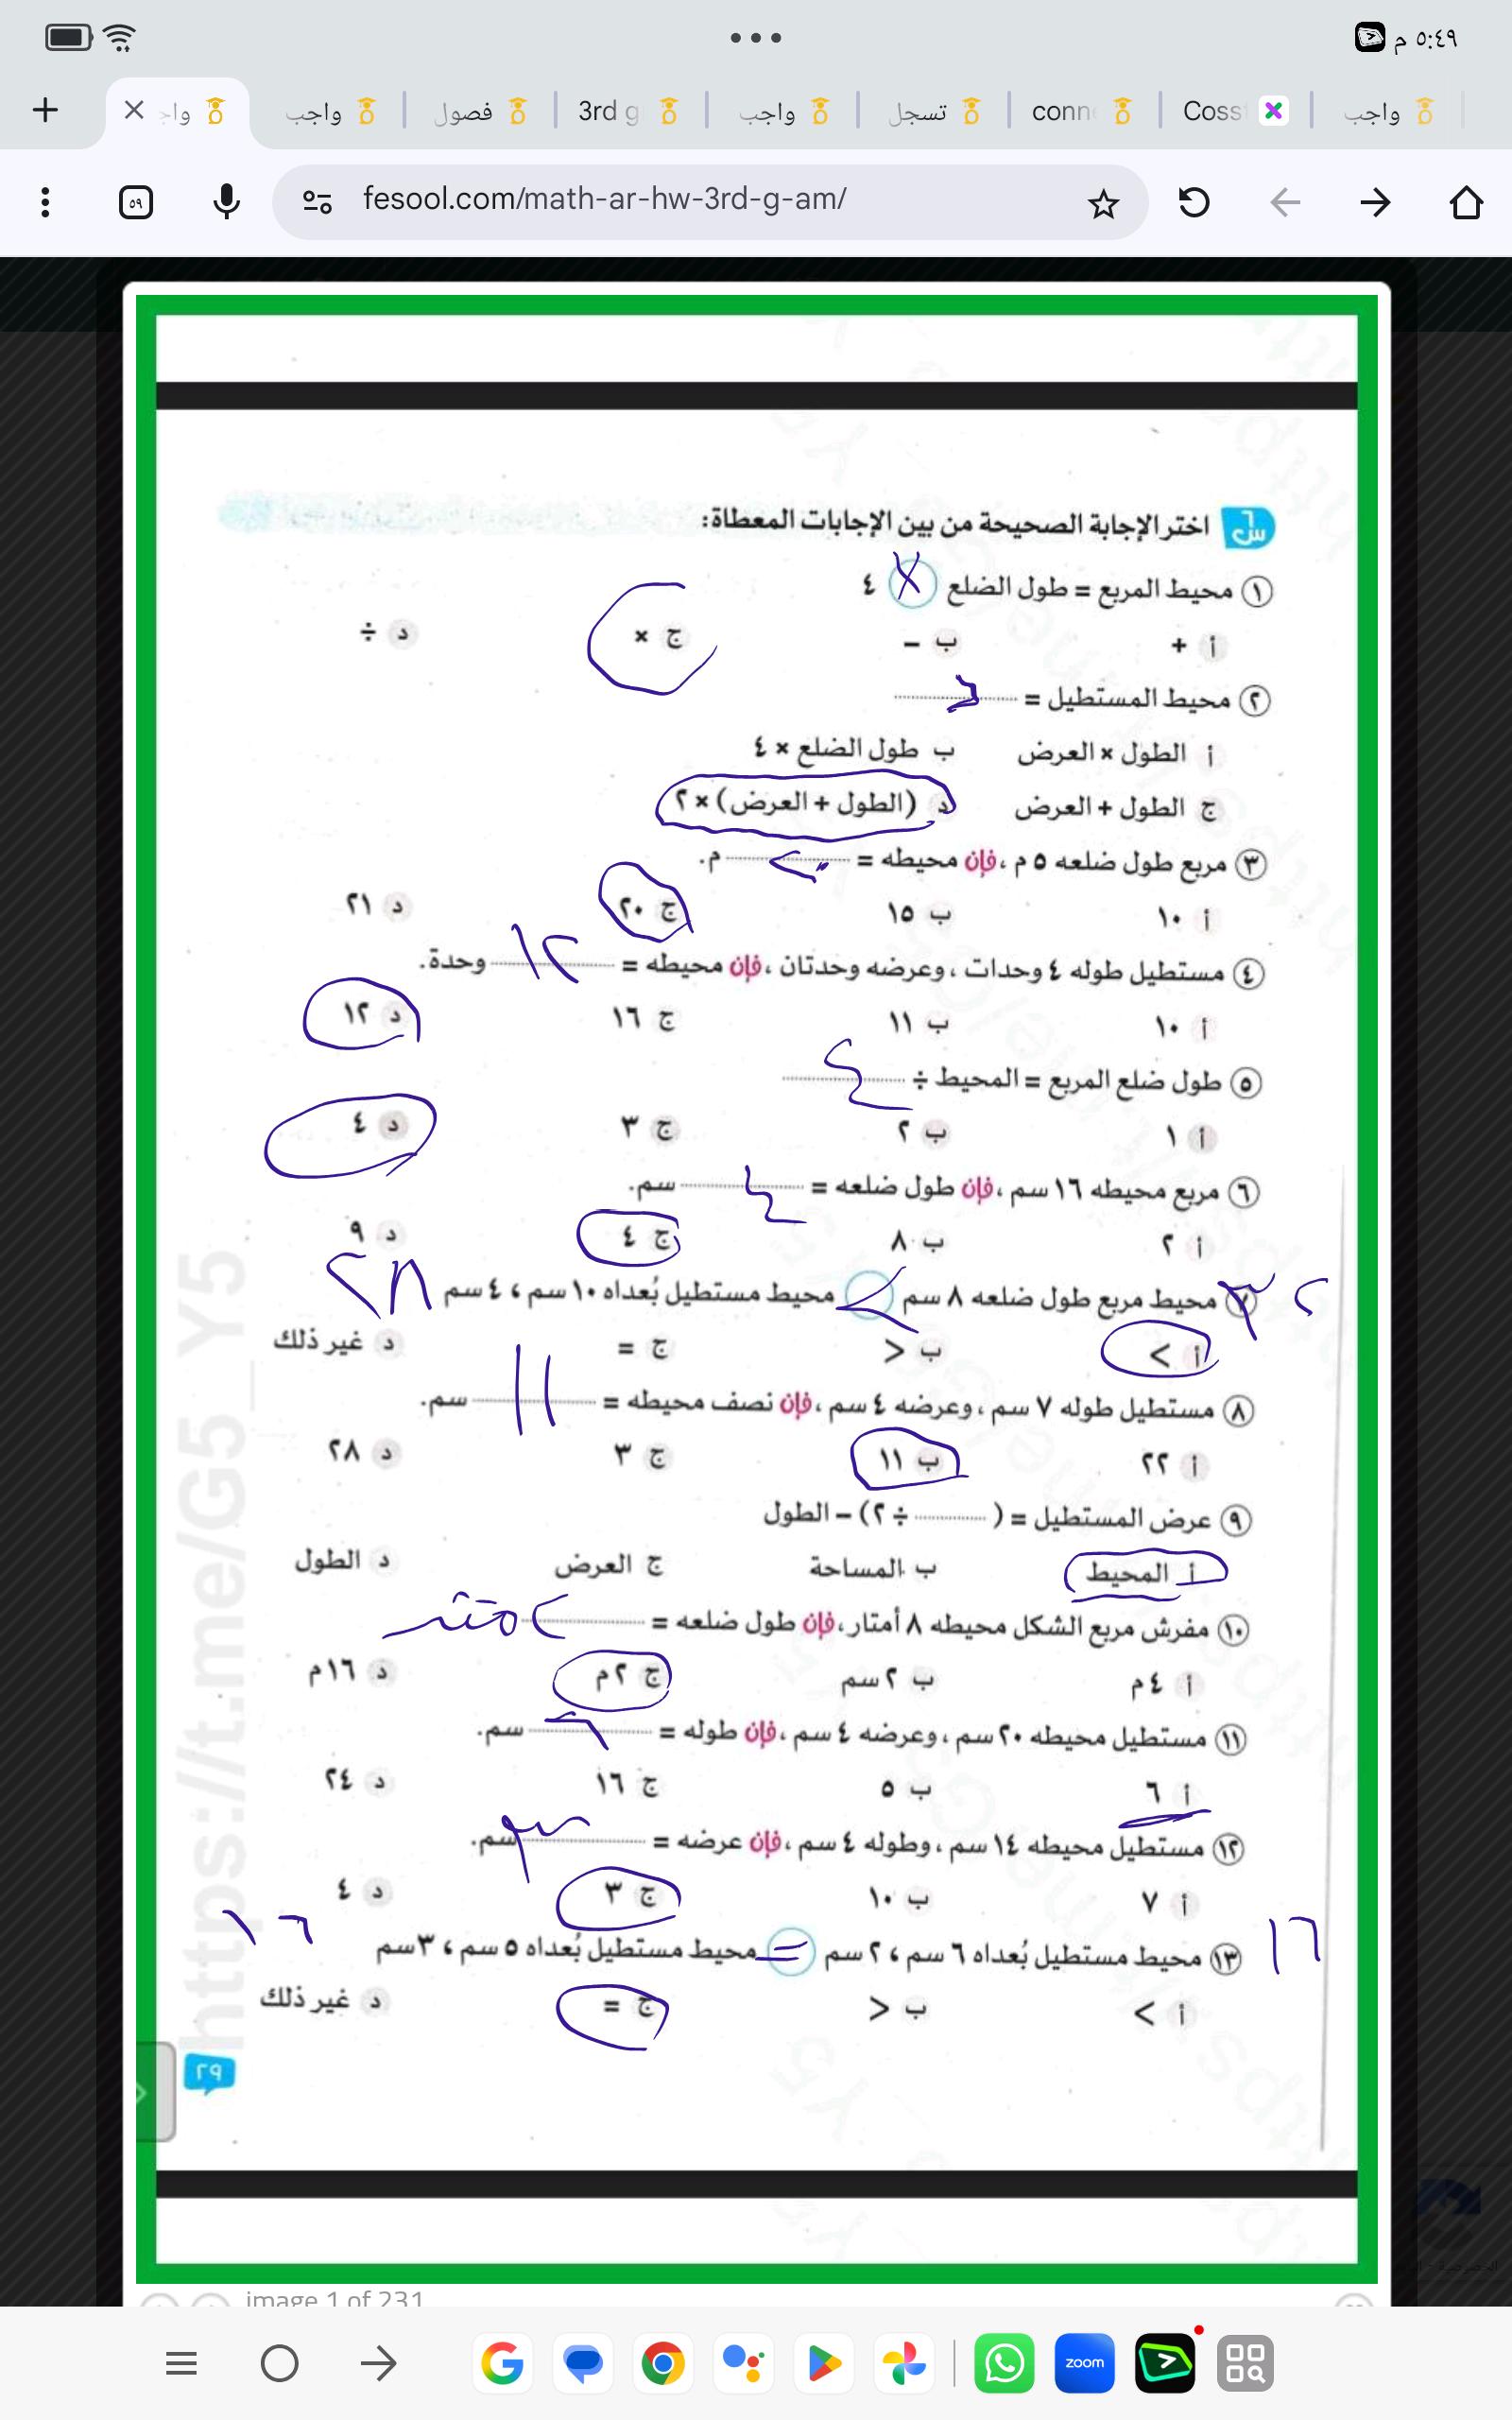 ٥:٤٩ م
واجب
فصول
3rd g
واجب
تسجل
conn
Coss
واجب
٥٩
fesool.com/math-ar-hw-3rd-g-am/
س٦ اختر الإجابة الصحيحة من بين الإجابات المعطاة:
١ محيط المربع = طول الضلع × ٤
أ + ب − ج × د ÷
٢ محيط المستطيل = ........ د
أ الطول × العرض ب طول الضلع × ٤
ج الطول + العرض د (الطول + العرض) × ٢
٣ مربع طول ضلعه ٥ م ، فإن محيطه = ........ ٢٠ م.
أ ١٠ ب ١٥ ج ٢٠ د ٢١
٤ مستطيل طوله ٤ وحدات ، وعرضه وحدتان ، فإن محيطه = ........ ١٢ وحدة.
أ ١٠ ب ١١ ج ١٦ د ١٢
٥ طول ضلع المربع = المحيط ÷ ........ ٤
أ ١ ب ٢ ج ٣ د ٤
٦ مربع محيطه ١٦ سم ، فإن طول ضلعه = ........ ٤ سم.
أ ٢ ب ٨ ج ٤ د ٩
٣٢ ٧ محيط مربع طول ضلعه ٨ سم > محيط مستطيل بُعداه ١٠ سم ، ٤ سم ٢٨
أ > ب < ج = د غير ذلك
٨ مستطيل طوله ٧ سم ، وعرضه ٤ سم ، فإن نصف محيطه = ........ ١١ سم.
أ ٢٢ ب ١١ ج ٣ د ٢٨
٩ عرض المستطيل = ( ........ ÷ ٢) − الطول
أ المحيط ب المساحة ج العرض د الطول
١٠ مفرش مربع الشكل محيطه ٨ أمتار ، فإن طول ضلعه = ........ ٢ متر
أ ٤ م ب ٢ سم ج ٢ م د ١٦ م
١١ مستطيل محيطه ٢٠ سم ، وعرضه ٤ سم ، فإن طوله = ........ ٦ سم.
أ ٦ ب ٥ ج ١٦ د ٢٤
١٢ مستطيل محيطه ١٤ سم ، وطوله ٤ سم ، فإن عرضه = ........ ٣ سم.
أ ٧ ب ١٠ ج ٣ د ٤
١٦ ١٣ محيط مستطيل بُعداه ٦ سم ، ٢ سم = محيط مستطيل بُعداه ٥ سم ، ٣ سم ١٦
أ > ب < ج = د غير ذلك
٢٩
https://t.me/G5_Y5
image 1 of 231
zoom